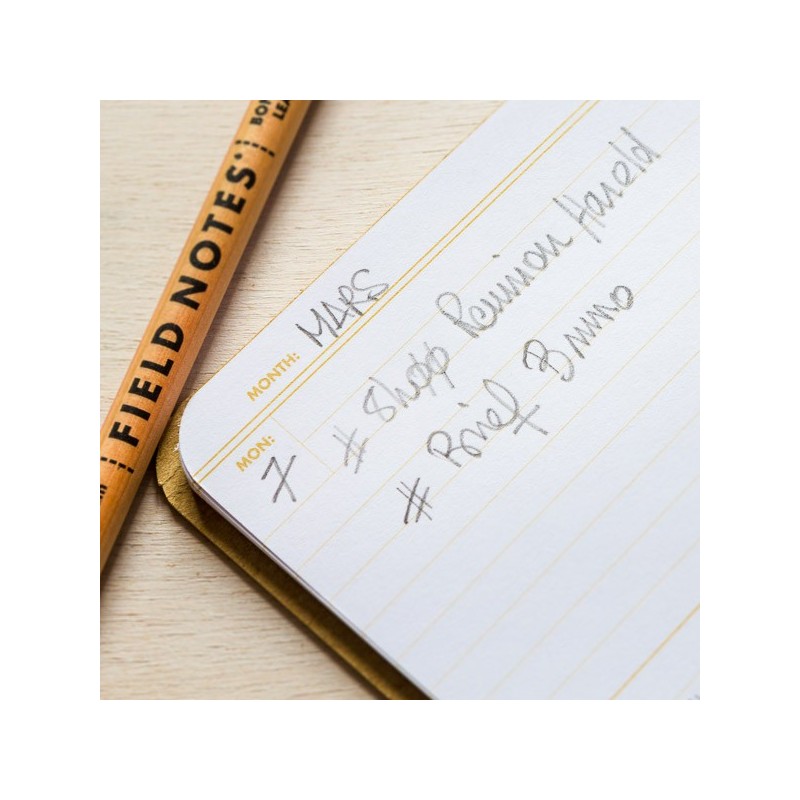 FIELD NOTES
MONTH: MARS
MON: 7
# Shopp Reunion Harold
# Brief Bruno